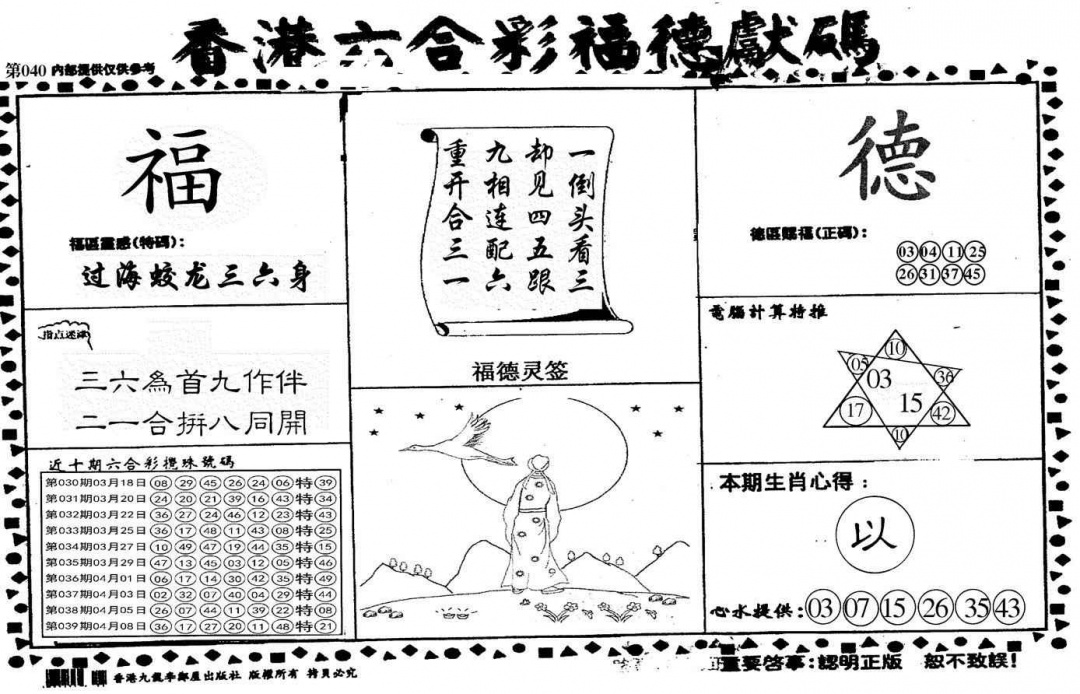 香港六合彩福德獻碼
第040 内部提供仅供参考
福
福區靈感(特碼):
过海蛟龙三六身
指点迷津
三六為首九作伴
二一合拼八同開
近十期六合彩攪珠號碼
第030期03月18日 08 29 45 26 24 06 特 39
第031期03月20日 24 20 21 39 16 43 特 34
第032期03月22日 36 27 24 46 12 23 特 43
第033期03月25日 36 17 48 11 43 08 特 25
第034期03月27日 10 49 47 19 44 35 特 15
第035期03月29日 47 13 45 03 12 05 特 46
第036期04月01日 06 17 14 30 42 35 特 49
第037期04月03日 02 32 07 40 04 29 特 44
第038期04月05日 26 07 44 11 39 22 特 08
第039期04月08日 36 17 27 20 11 48 特 21
一倒头看三
却见四五跟
九相连配六
重开合三一
福德灵签
德
德區賜福(正碼):
03 04 11 25
26 31 37 45
電腦計算特推
10
05 03 36
17 15 42
10
本期生肖心得:
以
心水提供: 03 07 15 26 35 43
香港九龍李鄭屋出版社 版權所有 拷貝必究
重要啓事:認明正版 恕不致誤!